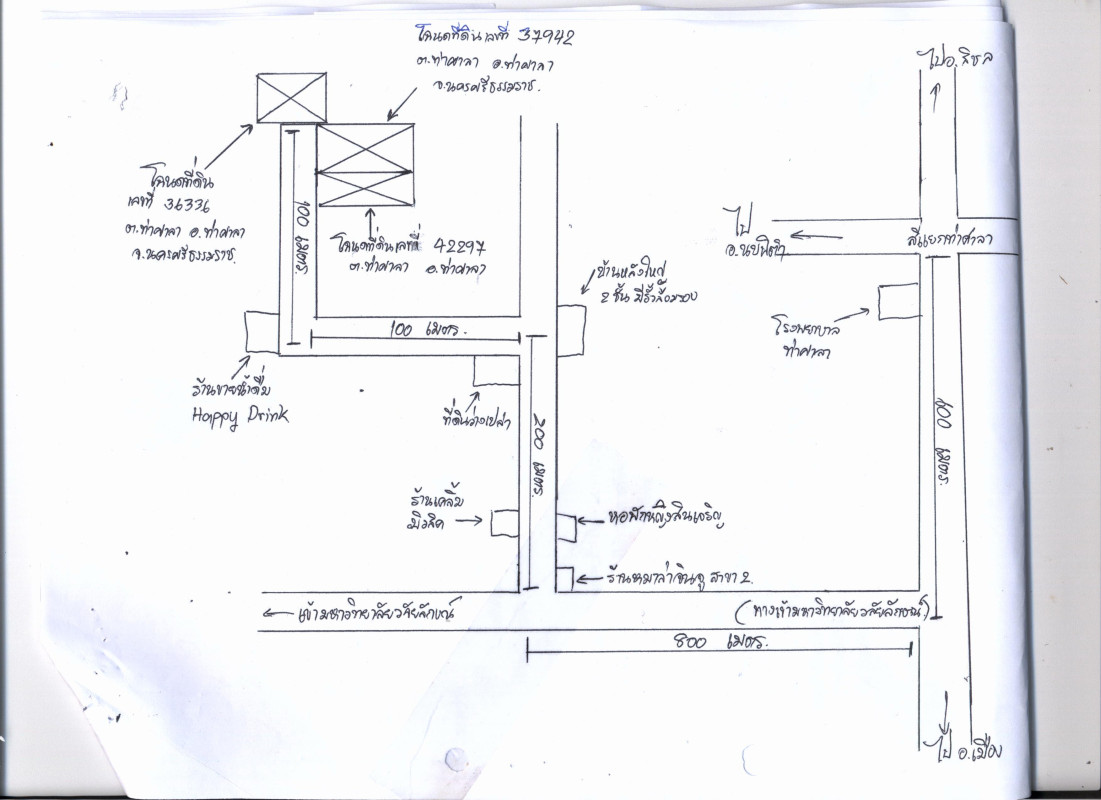 โฉนดที่ดินเลขที่ 37942
ต.ท่าศาลา อ.ท่าศาลา
จ.นครศรีธรรมราช.
ไปอ.สิชล
โฉนดที่ดิน
เลขที่ 36336
ต.ท่าศาลา อ.ท่าศาลา
จ.นครศรีธรรมราช.
100 เมตร.
โฉนดที่ดินเลขที่ 42297
ต.ท่าศาลา อ.ท่าศาลา
ไป
อ.นบพิตำ
สี่แยกท่าศาลา
บ้านหลังใหญ่
2 ชั้น มีรั้วล้อมรอบ
100 เมตร.
โรงพยาบาล
ท่าศาลา
ร้านขายน้ำดื่ม
Happy Drink
ที่ดินว่างเปล่า
200 เมตร.
เมตร.
ร้านเคลิ้ม
มิวสิค
หอพักหญิงสินเจริญ
ร้านหมาล่า สาขา 2.
เข้ามหาวิทยาลัยวลัยลักษณ์
(ทางเข้ามหาวิทยาลัยวลัยลักษณ์)
800 เมตร.
ไป อ.เมือง